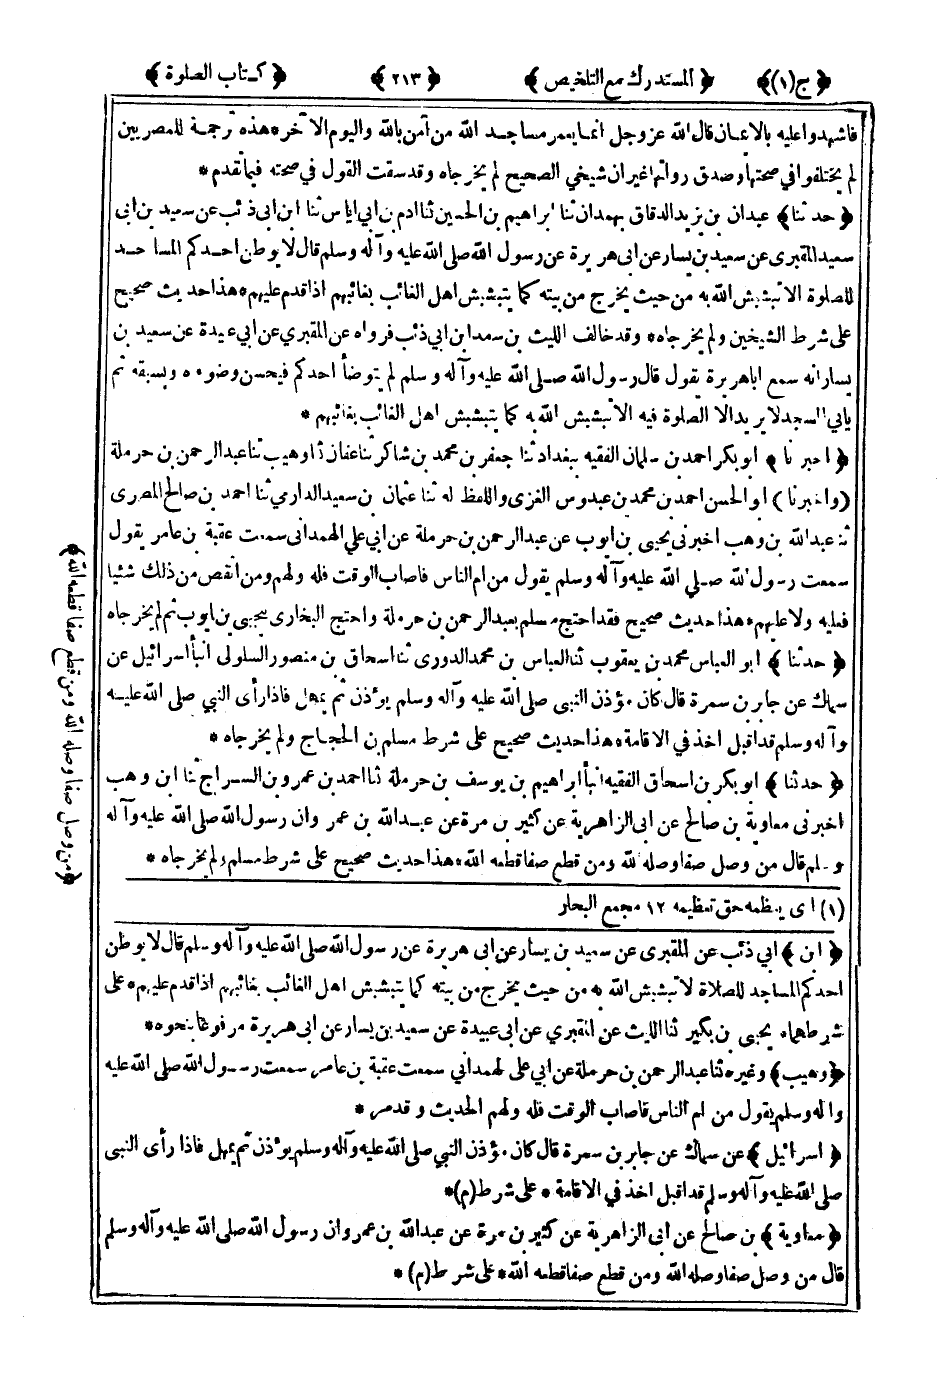 ﴿ ج (١) ﴾ ﴿ المستدرك مع التلخيص ﴾ ﴿ ٢١٣ ﴾ ﴿ كتاب الصلوة ﴾
فاشهدوا عليه بالايمان قال الله عز وجل انما يعمر مساجد الله من آمن بالله واليوم الآخر * هذه ترجمة للمصريين
لم يختلفوا في صحتها وصدق رواتها غير ان شيخي الصحيح لم يخرجاه وقد سقت القول في صحته فيما تقدم *
﴿ حدثنا ﴾ عبدان بن يزيد الدقاق بهمدان ثنا ابراهيم بن الحسين ثنا ادم بن ابي اياس ثنا ابن ابي ذئب عن سعيد بن ابى
سعيد المقبرى عن سعيد بن يسار عن ابى هريرة عن رسول الله صلى الله عليه وآله وسلم قال لا يوطن احدكم المساجد
للصلوة الا تبشبش الله به من حيث يخرج من بيته كما يتبشبش اهل الغائب بغائبهم اذا قدم عليهم * هذا حديث صحيح
على شرط الشيخين ولم يخرجاه * وقد خالف الليث بن سعد ابن ابي ذئب فرواه عن المقبري عن ابي عبيدة عن سعيد بن
يسار انه سمع اباهريرة يقول قال رسول الله صلى الله عليه وآله وسلم لم يتوضأ احدكم فيحسن وضوءه ويسبغه ثم
يأتي المسجد لا يريد الا الصلوة فيه الا تبشبش الله به كما يتبشبش اهل الغائب بغائبهم *
﴿ اخبرنا ﴾ ابو بكر احمد بن سلمان الفقيه ببغداد ثنا جعفر بن محمد بن شاكر ثنا عفان ثنا وهيب ثنا عبد الرحمن بن حرملة
(واخبرنا) ابو الحسن احمد بن محمد بن عبدوس العنزى واللفظ له ثنا عثمان بن سعيد الدارمي ثنا احمد بن صالح المصرى
ثنا عبد الله بن وهب اخبرنى يحيى بن ايوب عن عبد الرحمن بن حرملة عن ابي علي الهمدانى سمعت عقبة بن عامر يقول
سمعت رسول الله صلى الله عليه وآله وسلم يقول من ام الناس فاصاب الوقت فله ولهم ومن انقص من ذلك شيئا
فعليه ولا عليهم * هذا حديث صحيح فقد احتج مسلم بعبد الرحمن بن حرملة واحتج البخارى بيحيى بن ايوب ثم لم يخرجاه
﴿ حدثنا ﴾ ابو العباس محمد بن يعقوب ثنا العباس بن محمد الدورى ثنا اسحاق بن منصور السلولى انبأ اسرائيل عن
سماك عن جابر بن سمرة قال كان مؤذن النبى صلى الله عليه وآله وسلم يؤذن ثم يمهل فاذا رأى النبي صلى الله عليه
وآله وسلم قد اقبل اخذ في الاقامة * هذا حديث صحيح على شرط مسلم بن الحجاج ولم يخرجاه *
﴿ حدثنا ﴾ ابو بكر بن اسحاق الفقيه انبأ ابراهيم بن يوسف بن حرملة ثنا احمد بن عمرو بن السراج ثنا ابن وهب
اخبرنى معاوية بن صالح عن ابى الزاهرية عن كثير بن مرة عن عبد الله بن عمر وان رسول الله صلى الله عليه وآله
وسلم قال من وصل صفا وصله الله ومن قطع صفا قطعه الله * هذا حديث صحيح على شرط مسلم ولم يخرجاه *
﴿ من وصل صفا وصله الله ومن قطع صفا قطعه الله ﴾
(١) اى يعظمه حق تعظيمه ١٢ مجمع البحار
﴿ ابن ﴾ ابي ذئب عن المقبرى عن سعيد بن يسار عن ابى هريرة عن رسول الله صلى الله عليه وآله وسلم قال لا يوطن
احدكم المساجد للصلاة الا تبشبش الله به من حيث يخرج من بيته كما يتبشبش اهل الغائب بغائبهم اذا قدم عليهم * على
شرطهما * يحيى بن بكير ثنا الليث عن المقبري عن ابى عبيدة عن سعيد بن يسار عن ابى هريرة مرفوعا بنحوه *
﴿ وهيب ﴾ وغيره ثنا عبد الرحمن بن حرملة عن ابي على الهمداني سمعت عقبة بن عامر سمعت رسول الله صلى الله عليه
وآله وسلم يقول من ام الناس فاصاب الوقت فله ولهم الحديث وقد مر *
﴿ اسرائيل ﴾ عن سماك عن جابر بن سمرة قال كان مؤذن النبي صلى الله عليه وآله وسلم يؤذن ثم يمهل فاذا رأى النبى
صلى الله عليه وآله وسلم قد اقبل اخذ في الاقامة * على شرط (م) *
﴿ معاوية ﴾ بن صالح عن ابى الزاهرية عن كثير بن مرة عن عبد الله بن عمر وان رسول الله صلى الله عليه وآله وسلم
قال من وصل صفا وصله الله ومن قطع صفا قطعه الله * على شرط (م) *